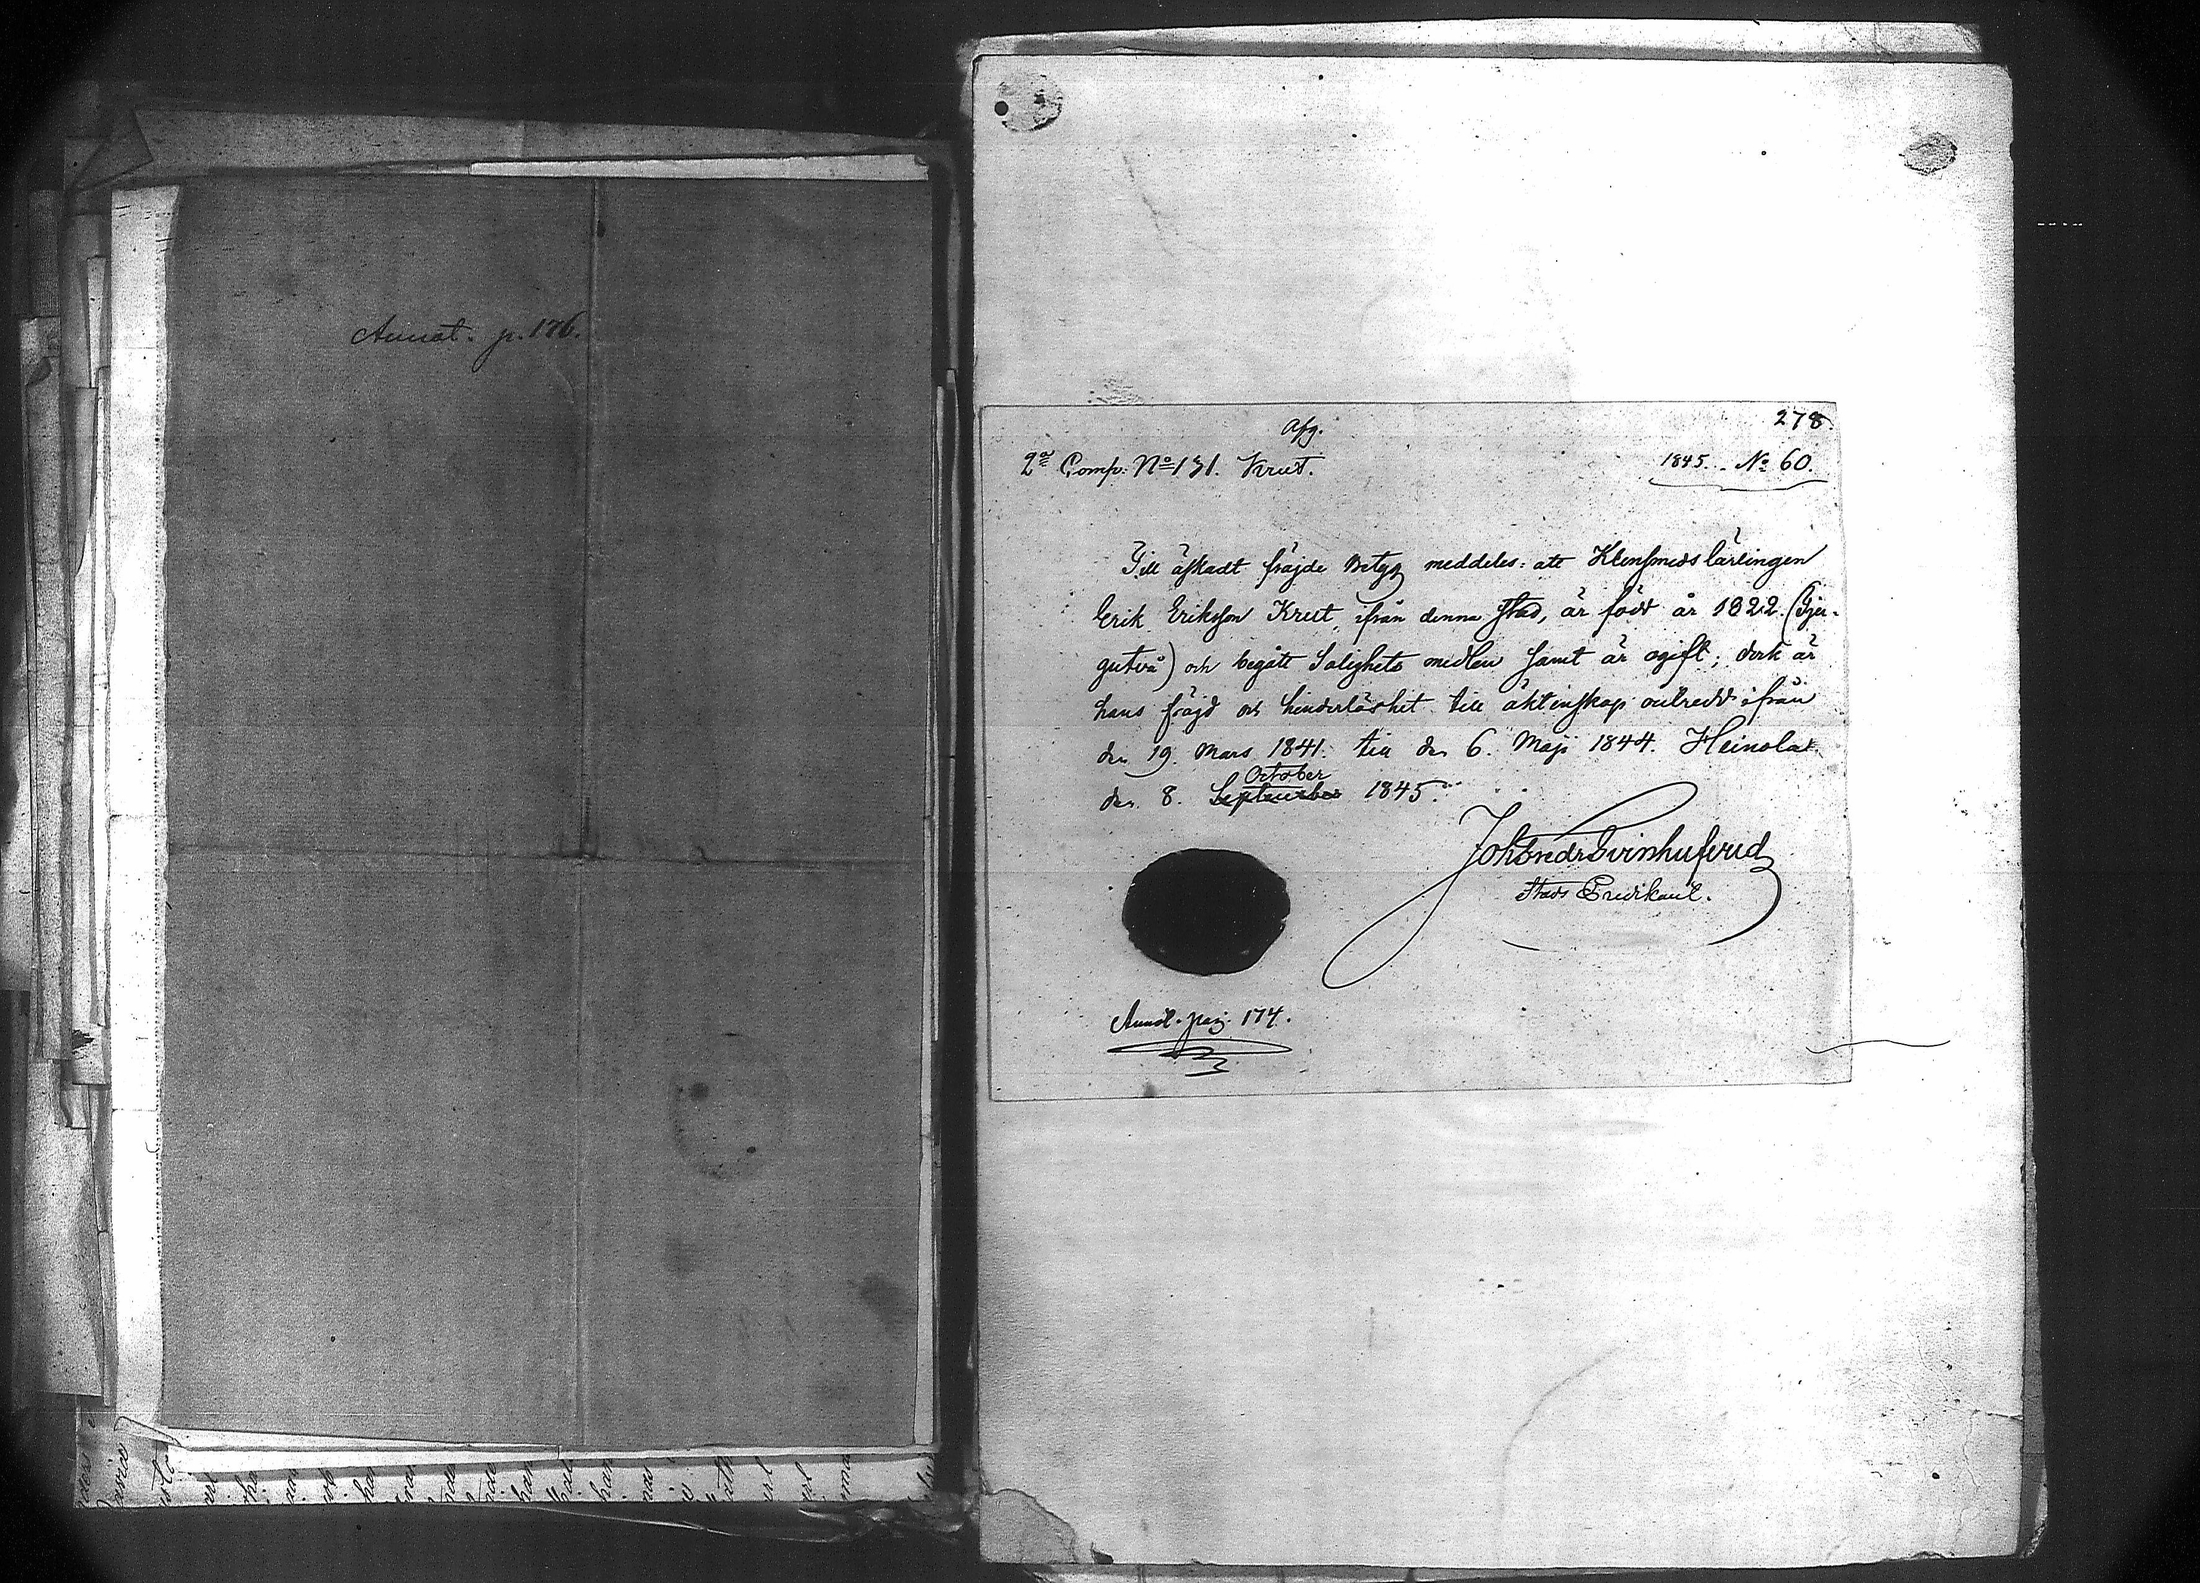 Annot. p. 176.
278.
Afg.
2a Comp: No 131. Krut.
1845. No 60.
Till äskadt fräjde Betyg meddeles: att Klensmedslärlingen
Erik Eriksson Krut, ifrån denna stad, är född år 1822. (Gjer-
gutvå) och begått Salighets medlen samt är ogift; dock är
hans fräjd och hinderlöshet till äktenskap outredd ifrån
den 19. Mars 1841. till den 6. Maji 1844. Heinola
October
den 8. September 1845.
Joh Endr Svinhufvud
Stads Predikant.
Annot. pag. 174.